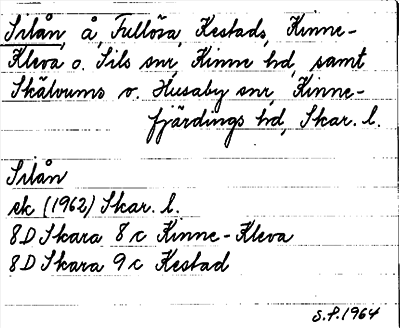 Silån, å, Fullösa, Kestads, Kinne-
Kleva o. Sils snr, Kinne hd, samt
Skälvums o. Husaby snr, Kinne-
fjärdings hd, Skar. l.
Silån
ek (1962) Skar. l.
8D Skara 8c Kinne-Kleva
8D Skara 9c Kestad
S.F. 1964